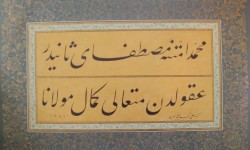 محمد امتنه مصطفای ثانیدر
عقولدن متعالی کمال مولانا